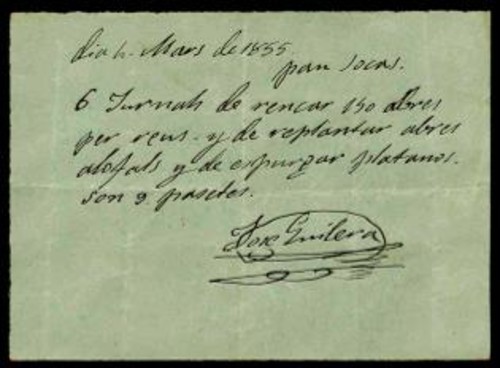 dia 4. Mars de 1855.
pau Socas.
6 Jurnals de rencar 150 abres
per reus. y de replantar abres
alofals y de espurgar platanos.
son 9 pasetes.
Jose Guilera